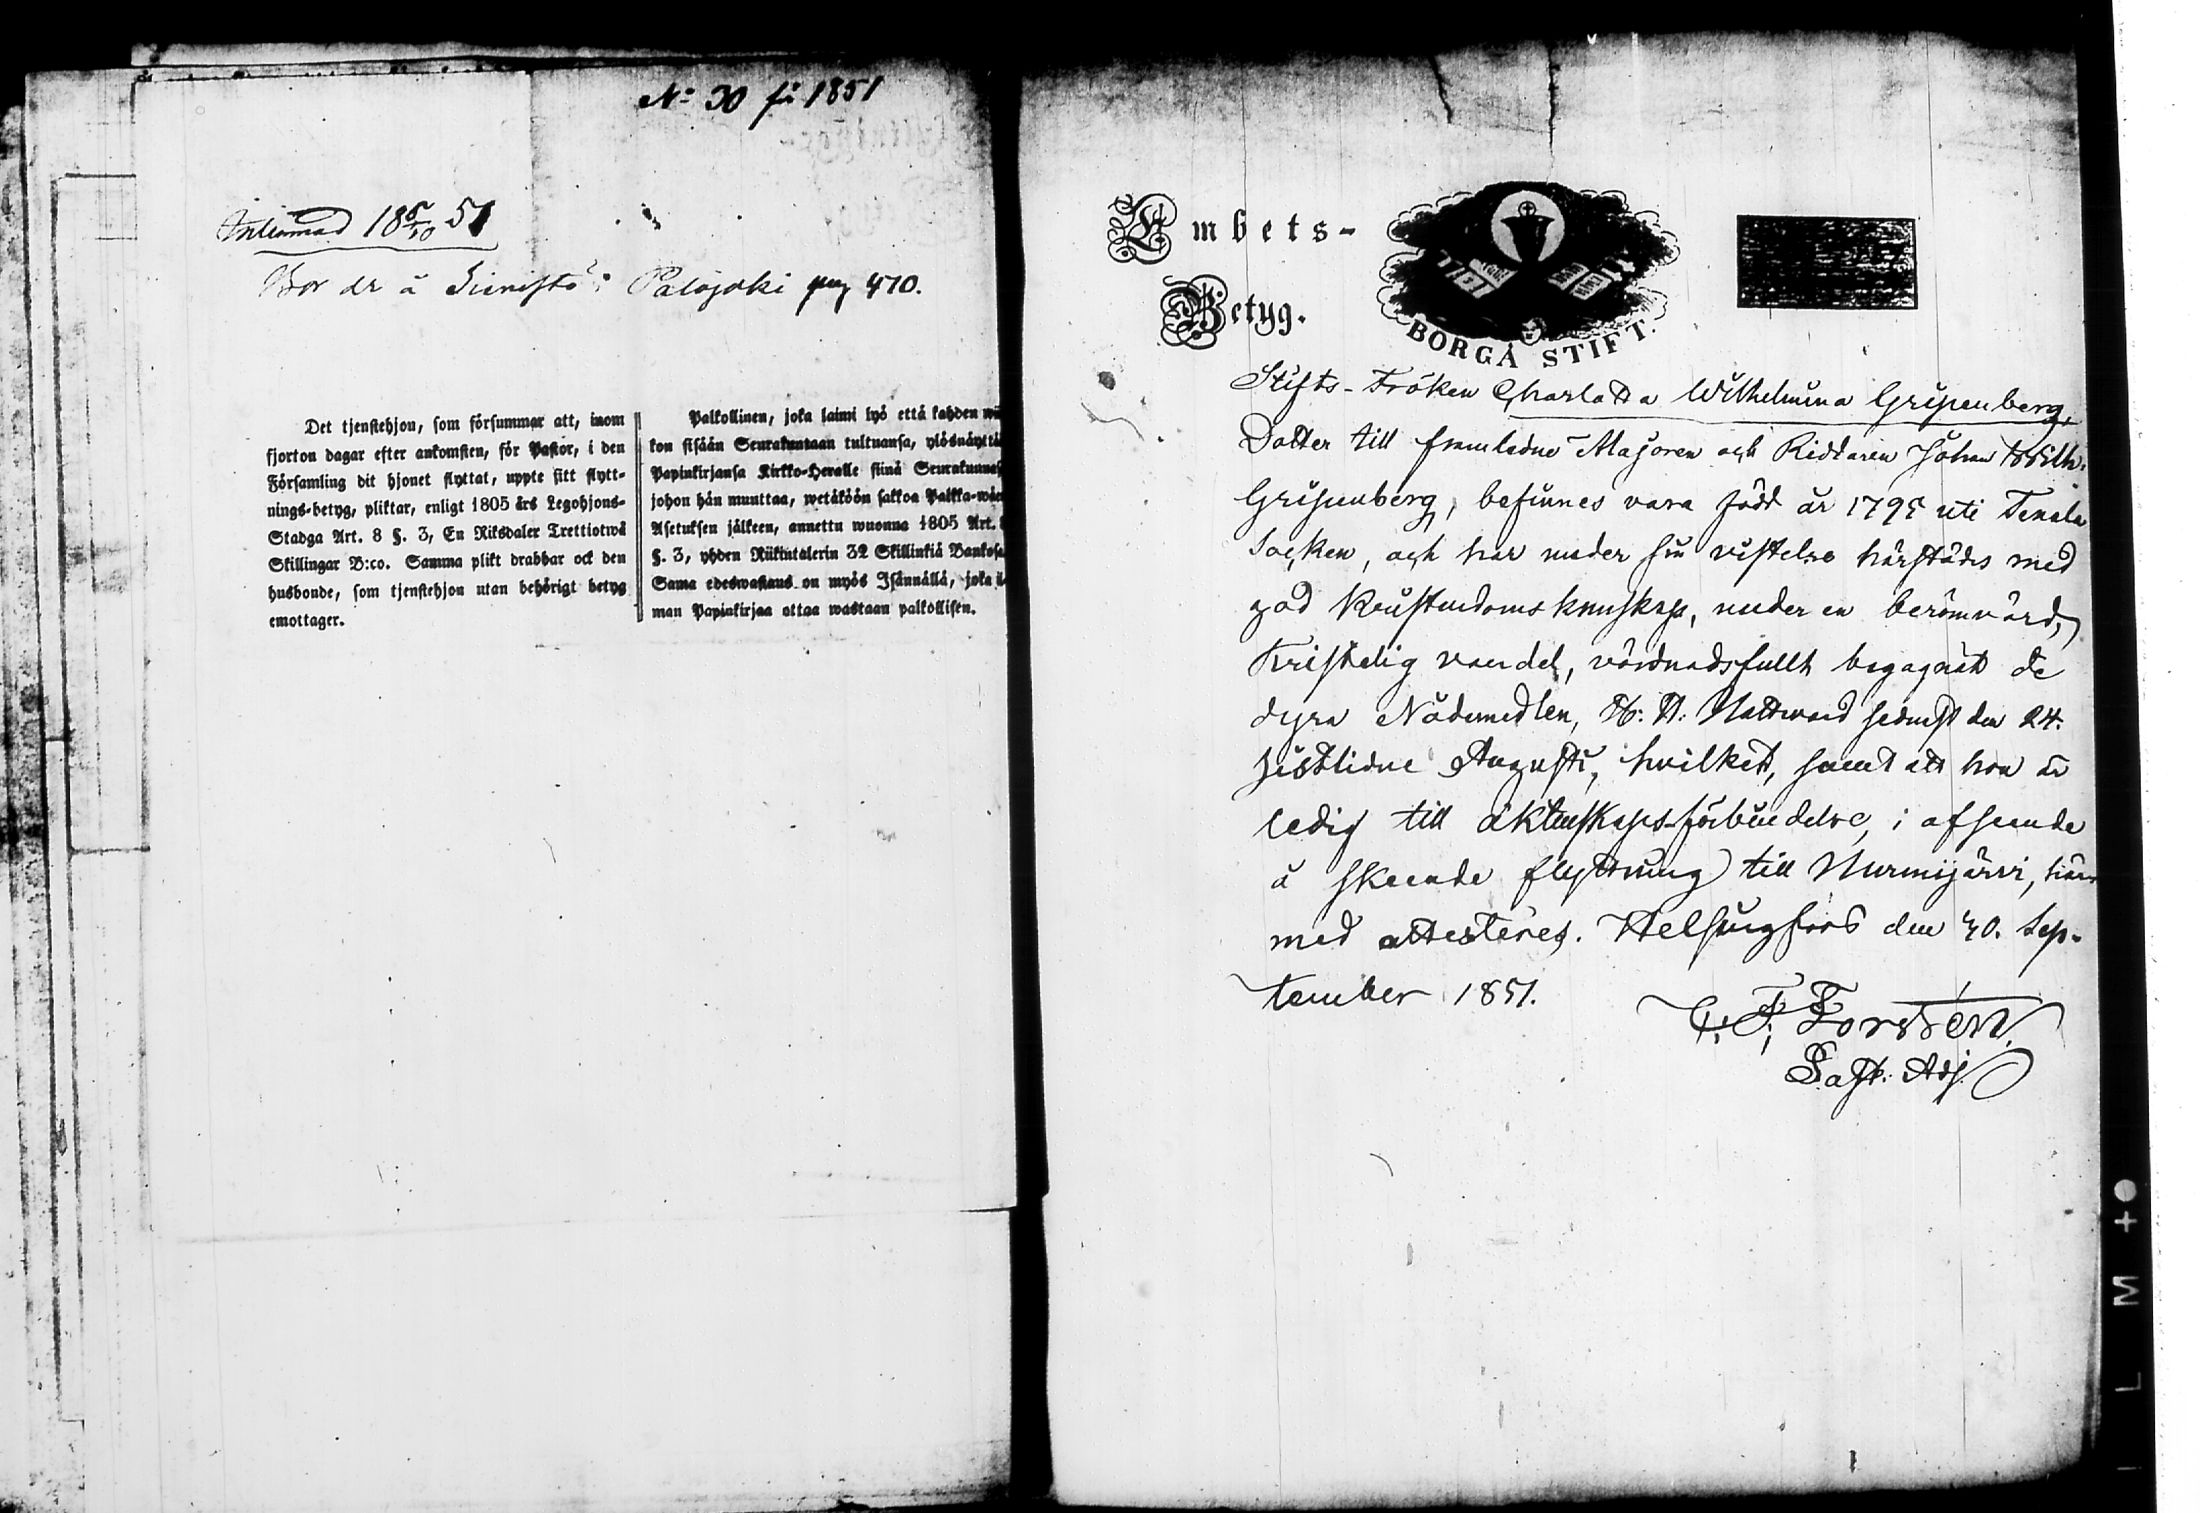 No 30 fö 1851
Inlemnad 18 5/10 51
Bor dr å Sienistö i Palojoki pag 470.
Det tjenstehjon, som försummar att, inom
fjorton dagar efter ankomsten, för Pastor, i den
Församling dit hjonet flyttat, uppte sitt flytt-
nings-betyg, pliktar, enligt 1805 års Legohjons-
Stadga Art. 8 §. 3, En Riksdaler Trettiotwå
Skillingar B:co. Samma plikt drabbar ock den
husbonde, som tjenstehjon utan behörigt betyg
emottager.
Palkollinen, joka laimi lyö että kahden wii
kon sisään Seurakuntaan tultuansa, ylösnäyttä
Papinkirjansa Kirkko-Herralle siinä Seurakunnas
johon hän muuttaa, wetäköön sakkoa Palkka-wäen
Asetuksen jälkeen, annettu wuonna 1805 Art. 8
§. 3, yhden Riikintalerin 32 Skillinkiä Bankosa
Sama edeswastaus on myös Isännällä, joka il
man Papinkirjaa ottaa wastaan palkollisen.
Embets-
Betyg.
BORGÅ STIFT.
Stifts-Fröken Charlotta Wilhelmina Gripenberg,
Dotter till framledne Majoren och Riddaren Johan Wilh:
Gripenberg, befinnes vara född år 1795 uti Tenala
Socken, och har under sin vistelse härstädes med
god Kristendomskunskap, under en berömvärd,
Kristelig vandel, vördnadsfullt begagnat de
dyra Nådemedlen, H: H: Nattward sednast den 24.
sistlidne Augusti, hvilket, samt att hon är
ledig till äktenskaps-förbindelse, i afseende
å skeende flyttning till Nurmijärvi, här-
med attesteres. Helsingfors den 30. Sep-
tember 1851.
C. F. Forstén.
Past: Adj.